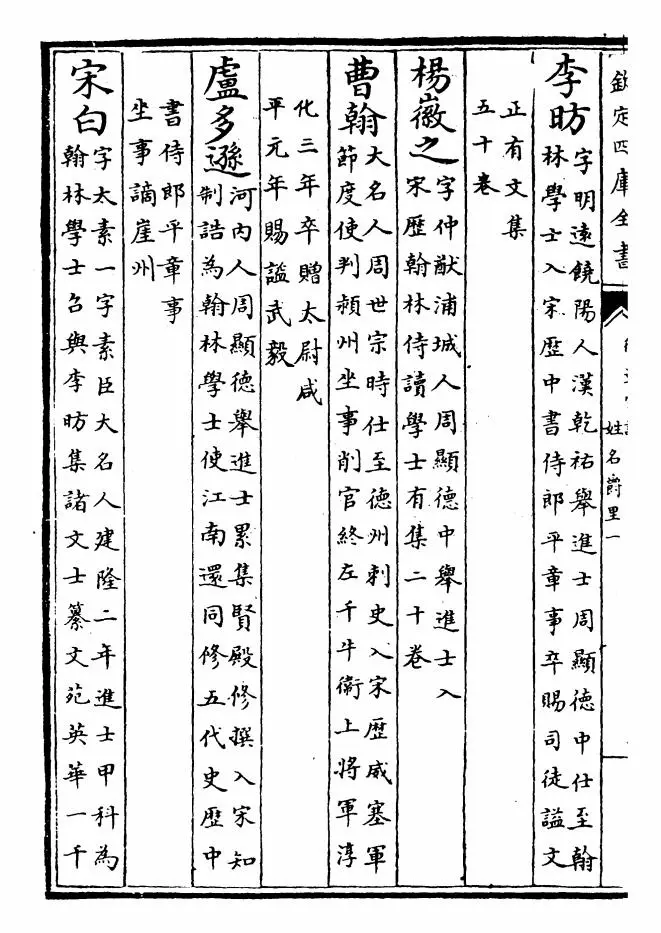 欽定四庫全書
姓名爵里一
李昉
字明遠饒陽人漢乾祐舉進士周顯德中仕至翰
林學士入宋歷中書侍郎平章事卒賜司徒諡文
正有文集
五十卷
楊徽之
字仲猷浦城人周顯德中舉進士入
宋歷翰林侍讀學士有集二十卷
曹翰
大名人周世宗時仕至德州刺史入宋歷威塞軍
節度使判潁州坐事削官終左千牛衛上將軍淳
化三年卒贈太尉咸
平元年賜諡武毅
盧多遜
河內人周顯德舉進士累集賢殿修撰入宋知
制誥為翰林學士使江南還同修五代史歷中
書侍郎平章事
坐事謫崖州
宋白
字太素一字素臣大名人建隆二年進士甲科為
翰林學士召與李昉集諸文士纂文苑英華一千